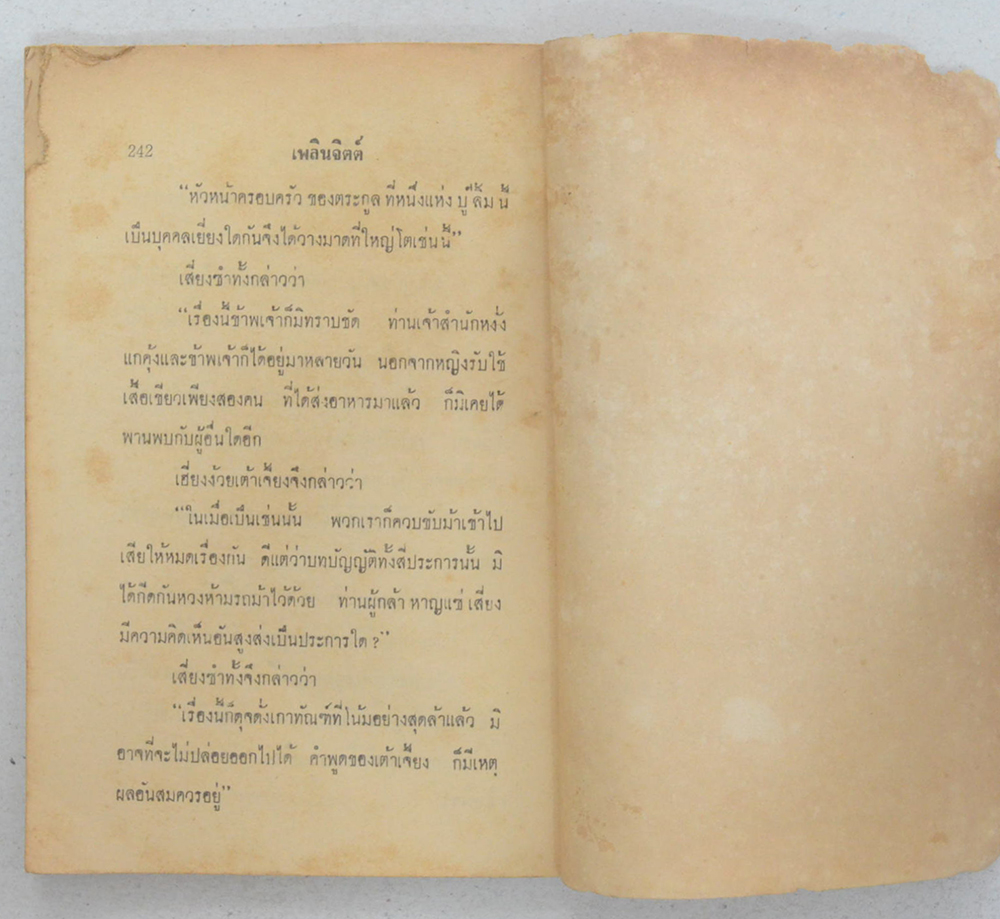 242
เพลินจิตต์
“หัวหน้าครอบครัว ของตระกูล ที่หนึ่งแห่ง บู๊ ลิ้ม นี้
เป็นบุคคลเยี่ยงใดกันจึงได้วางมาดที่ใหญ่โตเช่นนี้”
เสี่ยงชำทั้งกล่าวว่า
“เรื่องนี้ข้าพเจ้าก็มิทราบชัด ท่านเจ้าสำนักหงั่ง
แกคุ้งและข้าพเจ้าก็ได้อยู่มาหลายวัน นอกจากหญิงรับใช้
เสื้อเขียวเพียงสองคน ที่ได้ส่งอาหารมาแล้ว ก็มิเคยได้
พานพบกับผู้อื่นใดอีก
เฮี่ยงง้วยเต้าเจี้ยงจึงกล่าวว่า
“ในเมื่อเป็นเช่นนั้น พวกเราก็ควบขับม้าเข้าไป
เสียให้หมดเรื่องกัน ดีแต่ว่าบทบัญญัติทั้งสี่ประการนั้น มิ
ได้กีดกันหวงห้ามรถม้าไว้ด้วย ท่านผู้กล้า หาญแซ่ เสี่ยง
มีความคิดเห็นอันสูงส่งเป็นประการใด ?”
เสี่ยงชำทั้งจึงกล่าวว่า
“เรื่องนี้ก็ดุจดั่งเกาทัณฑ์ที่โน้มอย่างสุดล้าแล้ว มิ
อาจที่จะไม่ปล่อยออกไปได้ คำพูดของเต้าเจี้ยง ก็มีเหตุ
ผลอันสมควรอยู่”